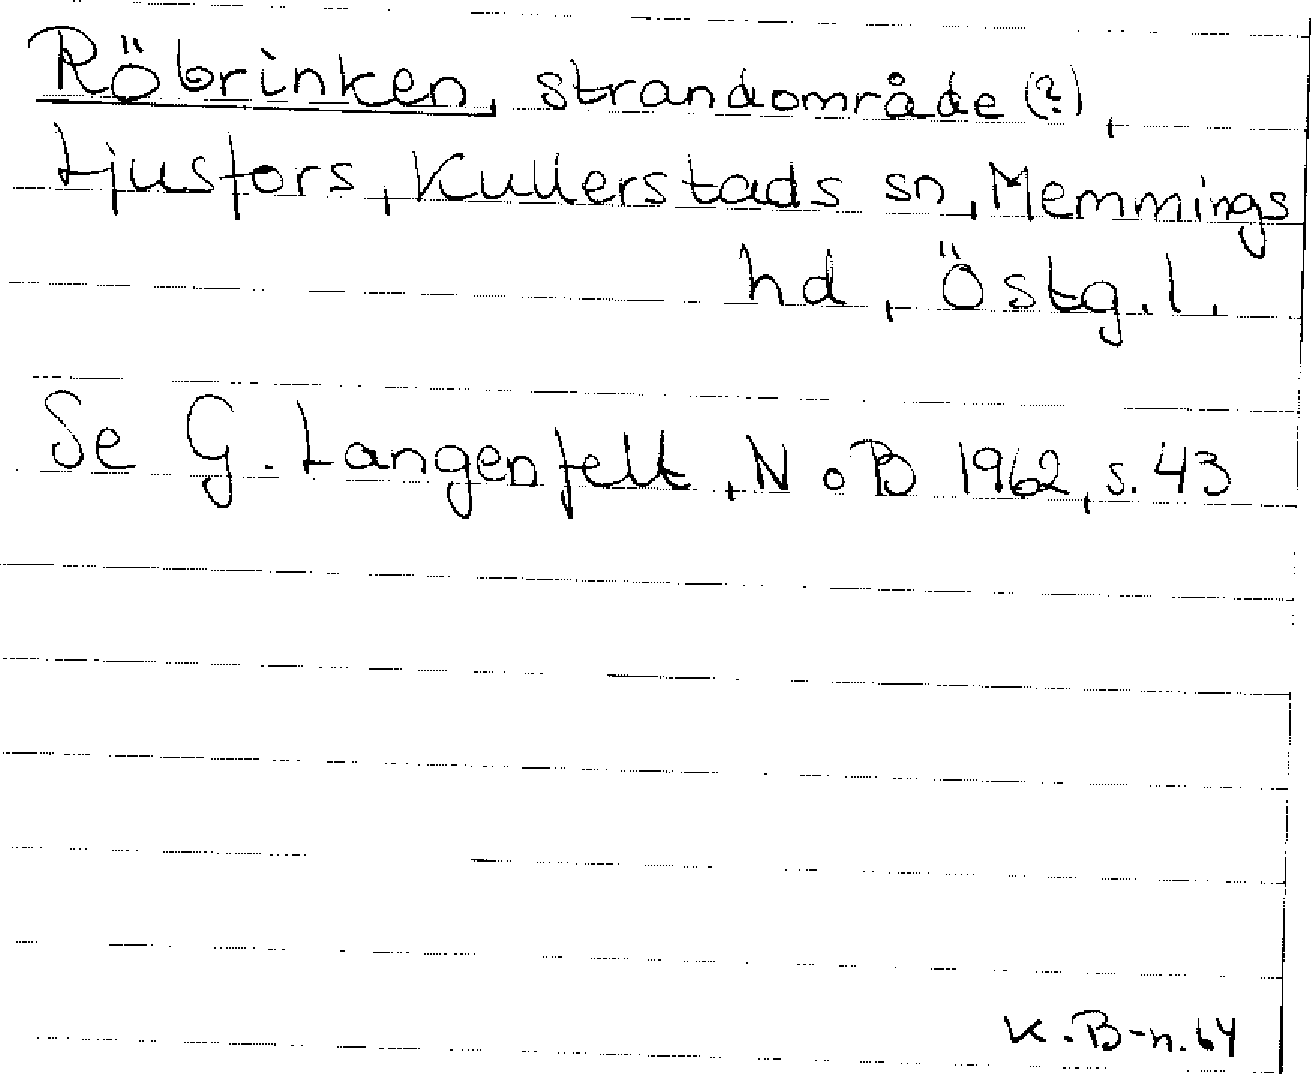 Röbrinken, strandområde (?),
Ljusfors, Kullerstads sn, Memmings
hd, Östg.l.
Se G. Langenfelt, NoB 1962, s. 43
K.B-n.64